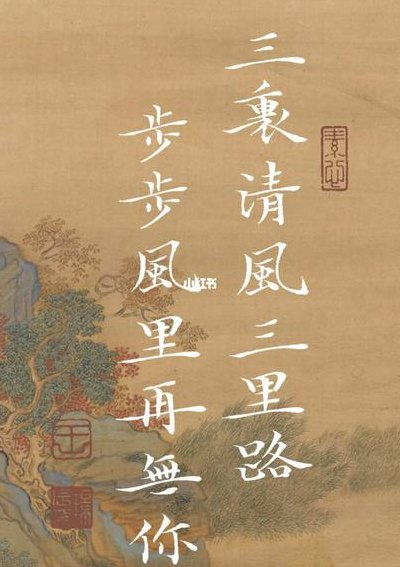 三裏清風三里路
步步風里再無你
小红书